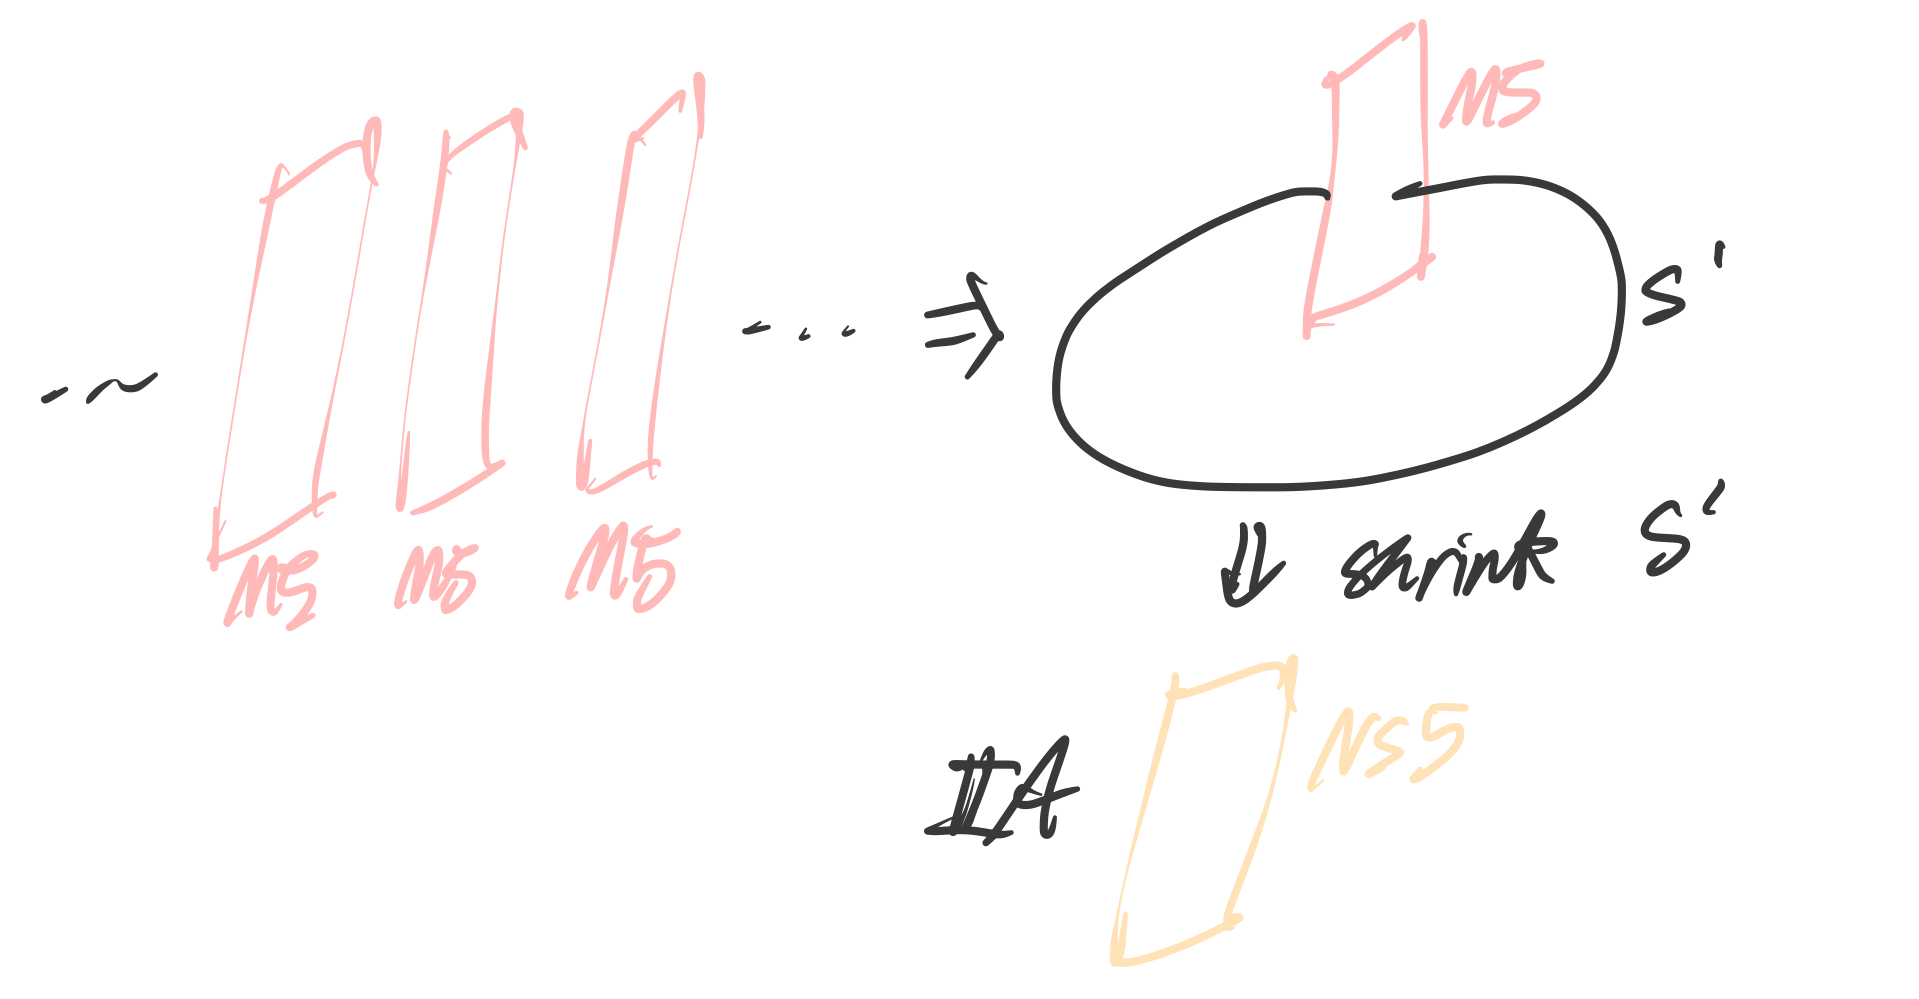 M5
S'
... M5 M5 M5 ... ⇒
⇓ shrink S'
IIA NS5